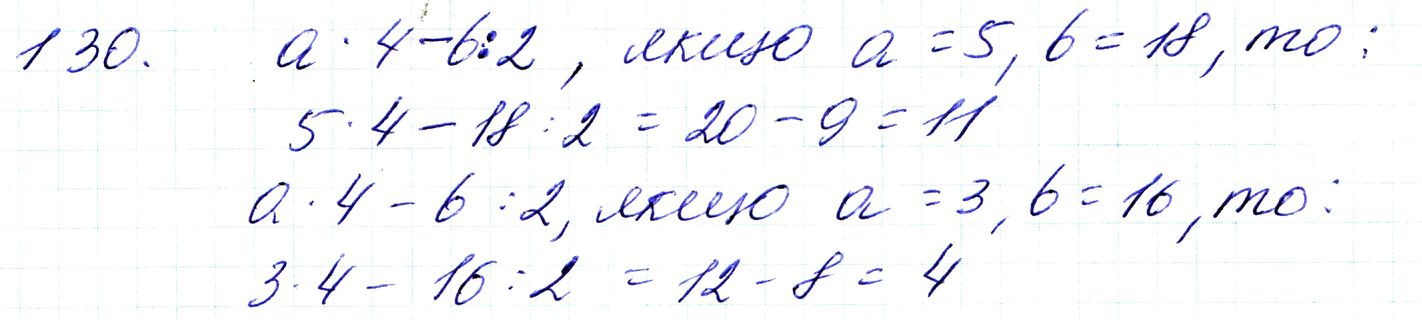 130. a · 4 - b : 2, якщо a = 5, b = 18, то:
5 · 4 - 18 : 2 = 20 - 9 = 11
a · 4 - b : 2, якщо a = 3, b = 16, то:
3 · 4 - 16 : 2 = 12 - 8 = 4